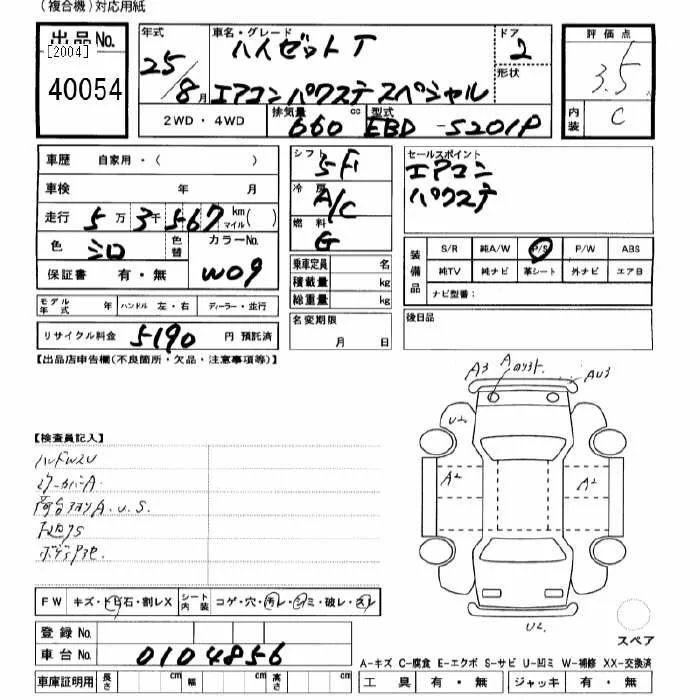 (複合機)対応用紙
出品No.
[2004]
40054
年式 25/8月
車名・グレード ハイゼットT
エアコンパワステスペシャル
ドア 2
形状
評価点 3.5
内装 C
2WD・4WD
排気量 660 cc
型式 EBD-S201P
車歴 自家用・( )
車検 年 月
走行 5万3千567 km マイル( )
色 シロ
色替
カラーNo. W09
保証書 有・無
モデル年式 年 ハンドル 左・右 ディーラー・並行
リサイクル料金 5190 円 預託済
シフト 5F
冷房 A/C
燃料 G
乗車定員 名
積載量 kg
総重量 kg
名変期限 月 日
セールスポイント
エアコン
パワステ
装備品
S/R 純A/W P/S P/W ABS
純TV 純ナビ 革シート 外ナビ エアB
ナビ型番:
後日品
【出品店申告欄(不良箇所・欠品・注意事項等)】
A3 A AU3
U2
A2 A2
U2
スペア
【検査員記入】
FW キズ・トビ石・割レX
シート内装 コゲ・穴・汚レ・シミ・破レ・スレ
登録No.
車台No. 0104856
車庫証明用 長さ cm 幅 cm 高さ cm
A-キズ C-腐食 E-エクボ S-サビ U-凹ミ W-補修 XX-交換済
工具 有・無 ジャッキ 有・無